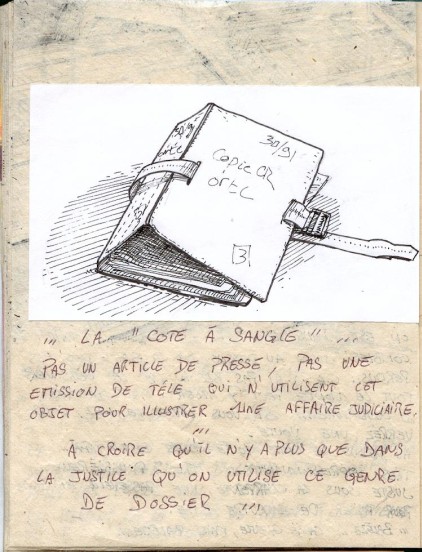 30/91
30/91
copie CR
3
... LA "COTE À SANGLE" ...
PAS UN ARTICLE DE PRESSE, PAS UNE
EMISSION DE TÉLÉ QUI N'UTILISENT CET
OBJET POUR ILLUSTRER UNE AFFAIRE JUDICIAIRE.
...
À CROIRE QU'IL N'Y A PLUS QUE DANS
LA JUSTICE QU'ON UTILISE CE GENRE
DE DOSSIER !!!